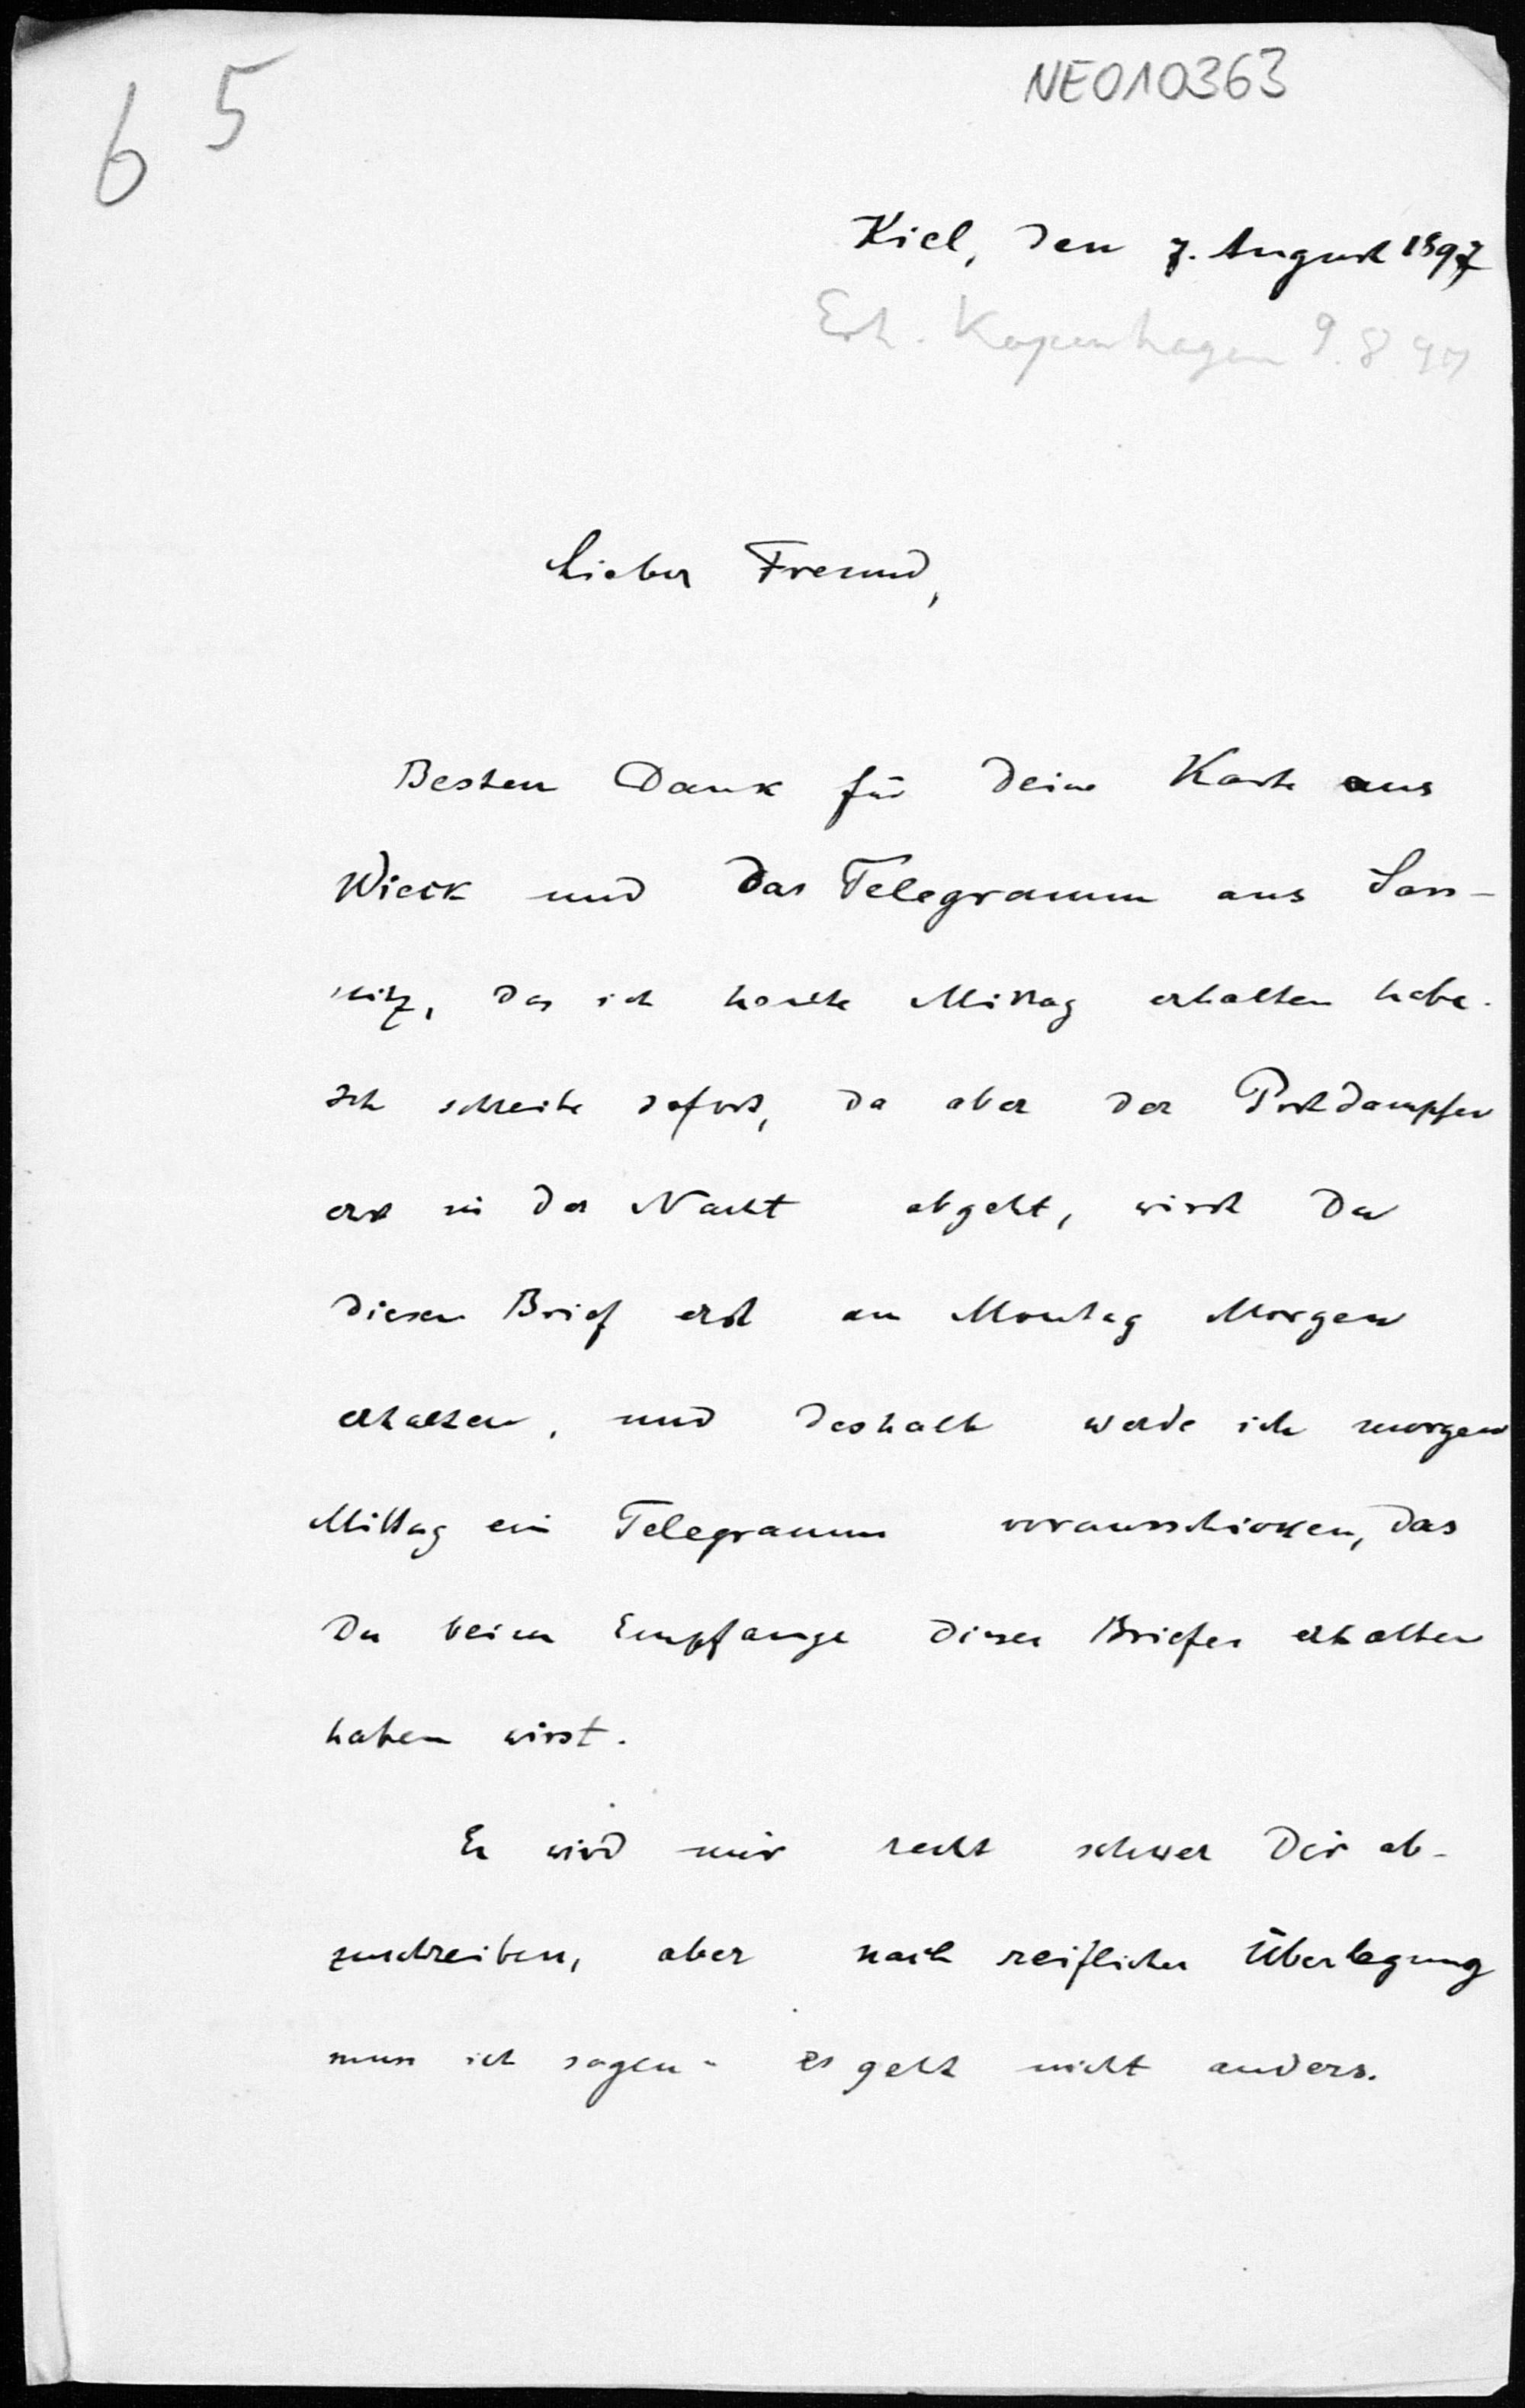 6 5
NE010363
Kiel, den 7. August 1897
Erh. Kopenhagen 9.8.97
Lieber Freund,
Besten Dank für Deine Karte aus
Wieck und das Telegramm aus Sass-
nitz, das ich heute Mittag erhalten habe.
Ich schreibe sofort, da aber der Postdampfer
erst in der Nacht abgeht, wirst Du
diesen Brief erst am Montag Morgen
erhalten, und deshalb werde ich morgen
Mittag ein Telegramm vorausschicken, das
Du beim Empfange dieses Briefes erhalten
haben wirst.
Es wird mir recht schwer Dir ab-
zuschreiben, aber nach reiflicher Überlegung
muss ich sagen - es geht nicht anders.